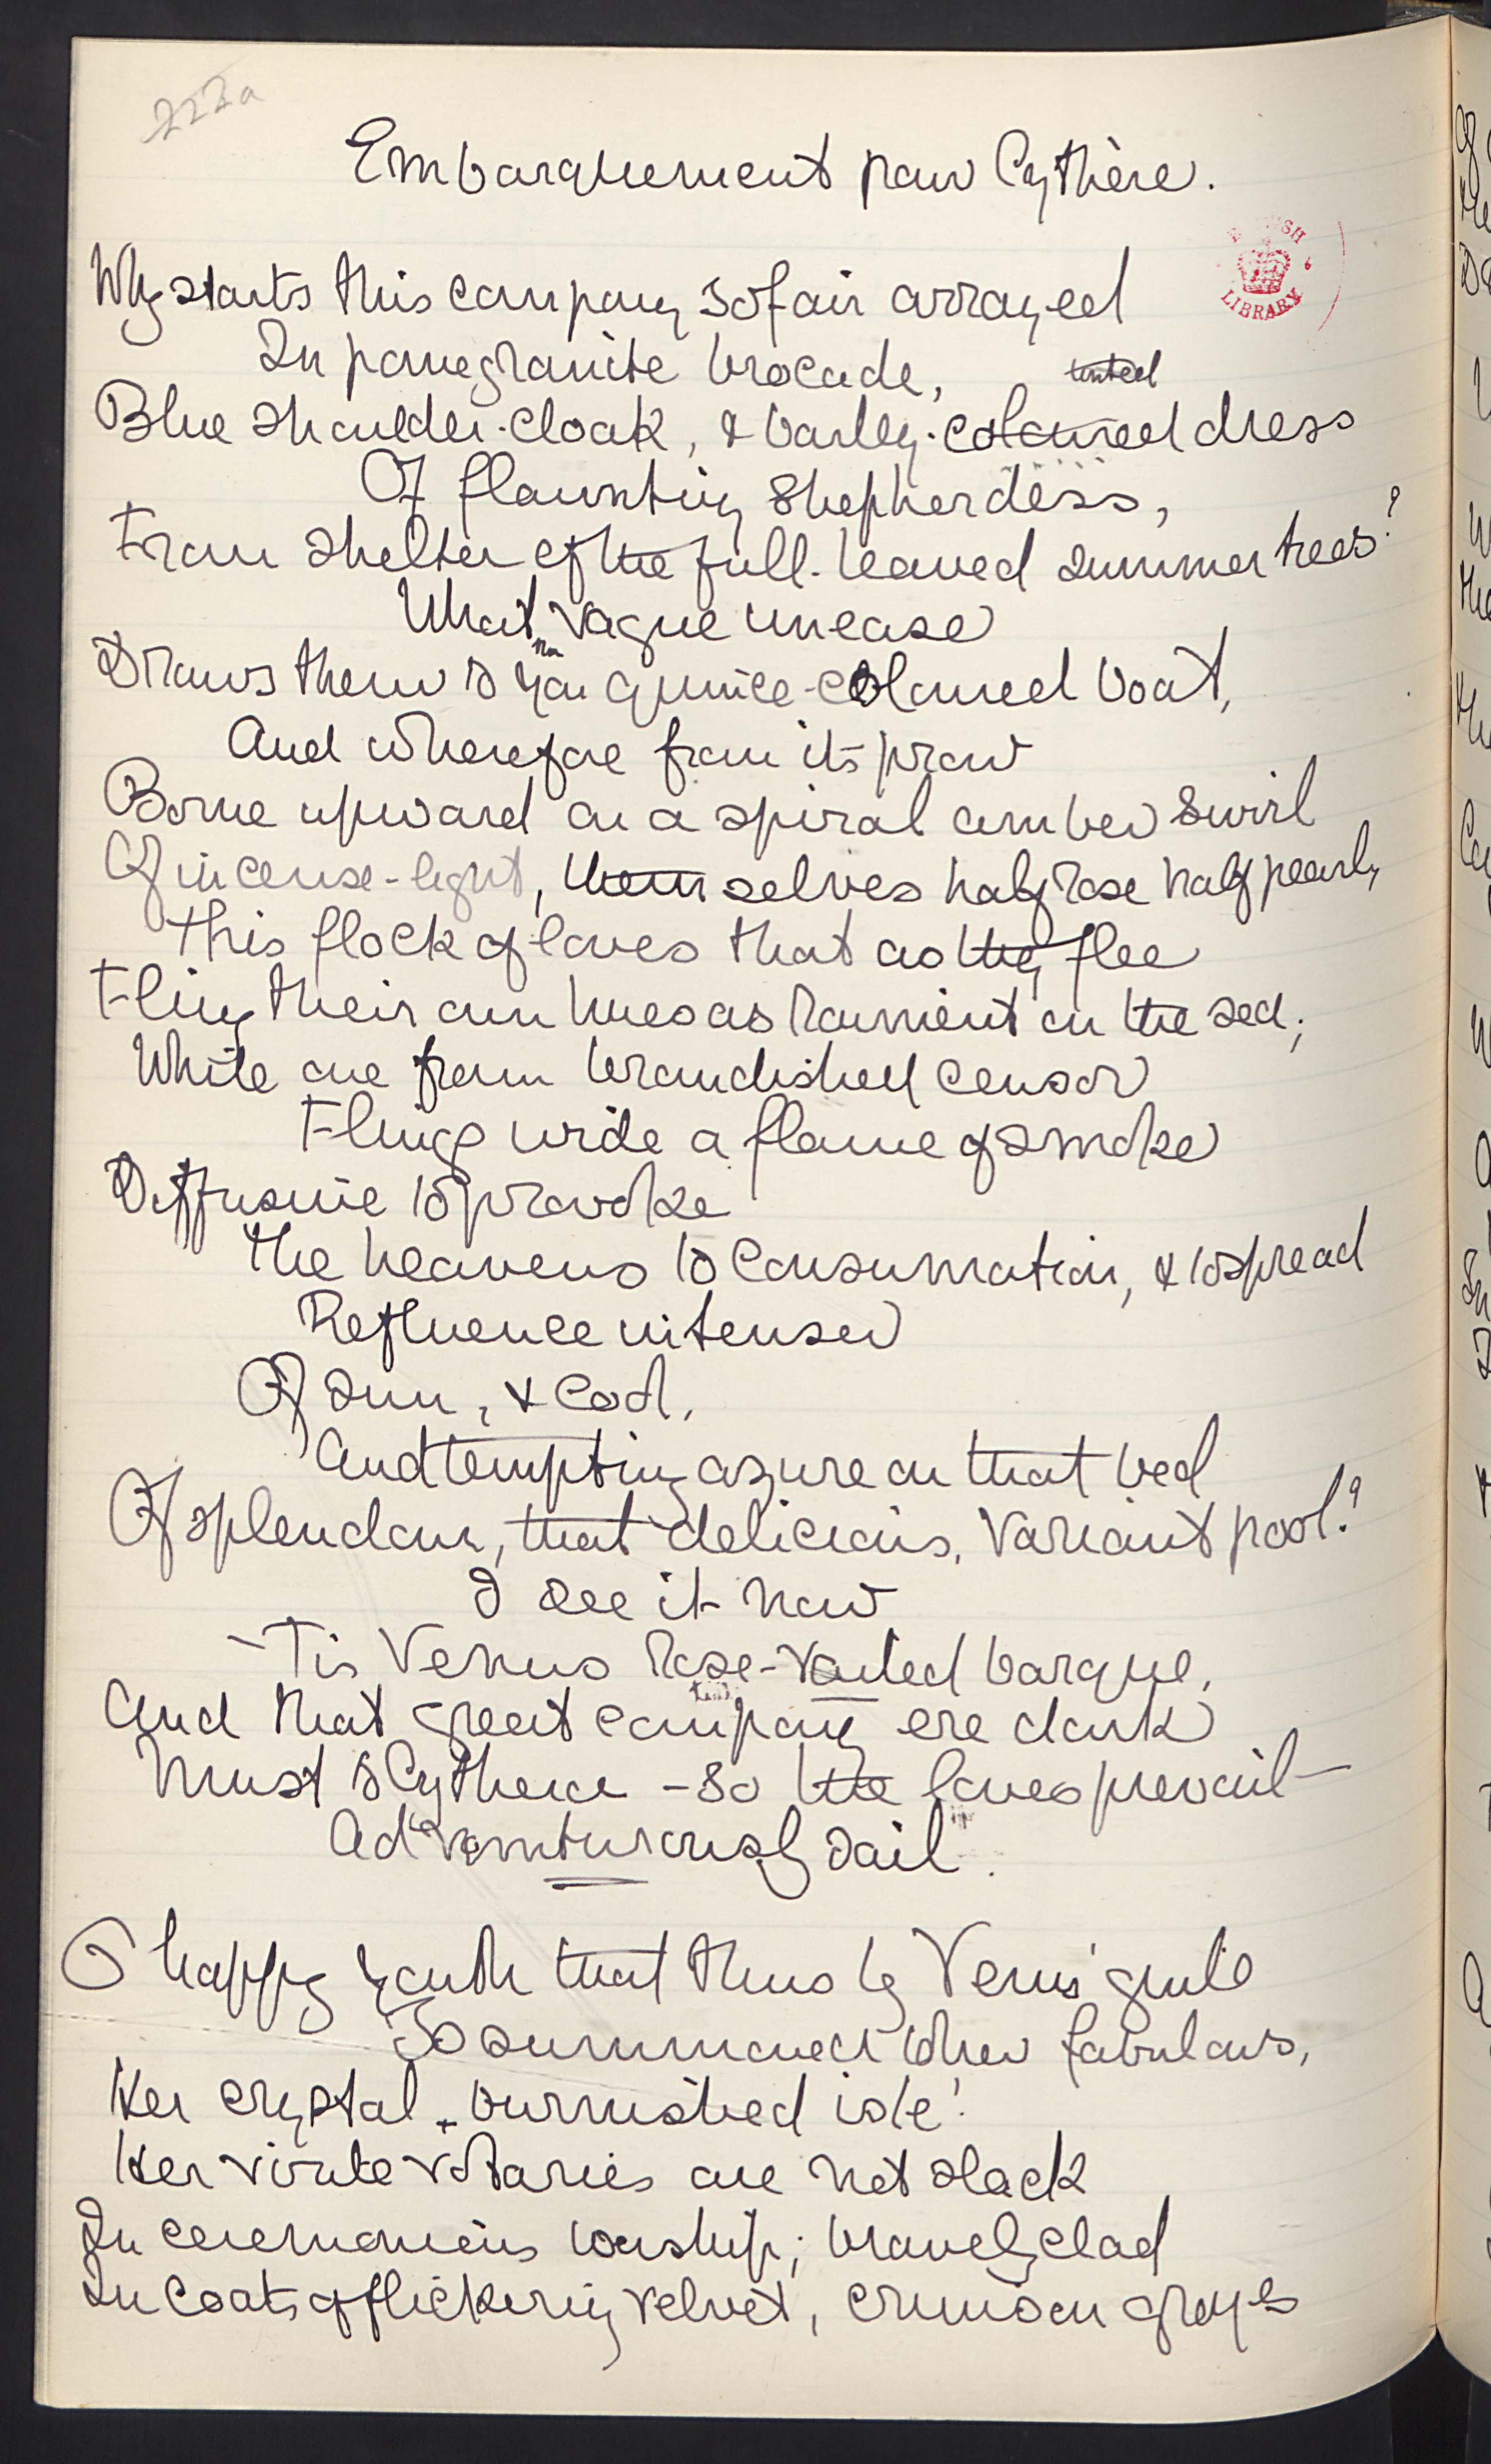 222a
Embarquement pour Cythère.
BRITISH LIBRARY
Why starts this company so fair arrayed
In pomegranite brocade,
tinted
Blue shoulder-cloak, & barley-coloured dress
Of flaunting shepherdess,
From shelter of the full-leaved summer trees?
What vague unease
Draws them to yon quince-coloured boat,
And wherefore from its prow
Borne upward on a spiral amber swirl
Of incense-light, themselves half rose half pearl,
This flock of loves that as they flee
Fling their own hues as raiment on the sea;
While one from brandished censor
Flings wide a flame of smoke
Diffusive to provoke
The heavens to consumation, & to spread
Refluence intenser
Of sun, & cool,
And tempting azure on that bed
Of splendour, that delicious, variant pool?
I see it now
- Tis Venus rose-vailed barque,
And that great company ere dark
Must to Cythera - so the loves prevail -
Adventurously sail.
O happy youth that thus by Venus' guile
Is summoned to her fabulous,
Her crystal-burnished isle!
Her virile votaries are not slack
In ceremonious worship; bravely clad
In coats of flickering velvet, crimson greys